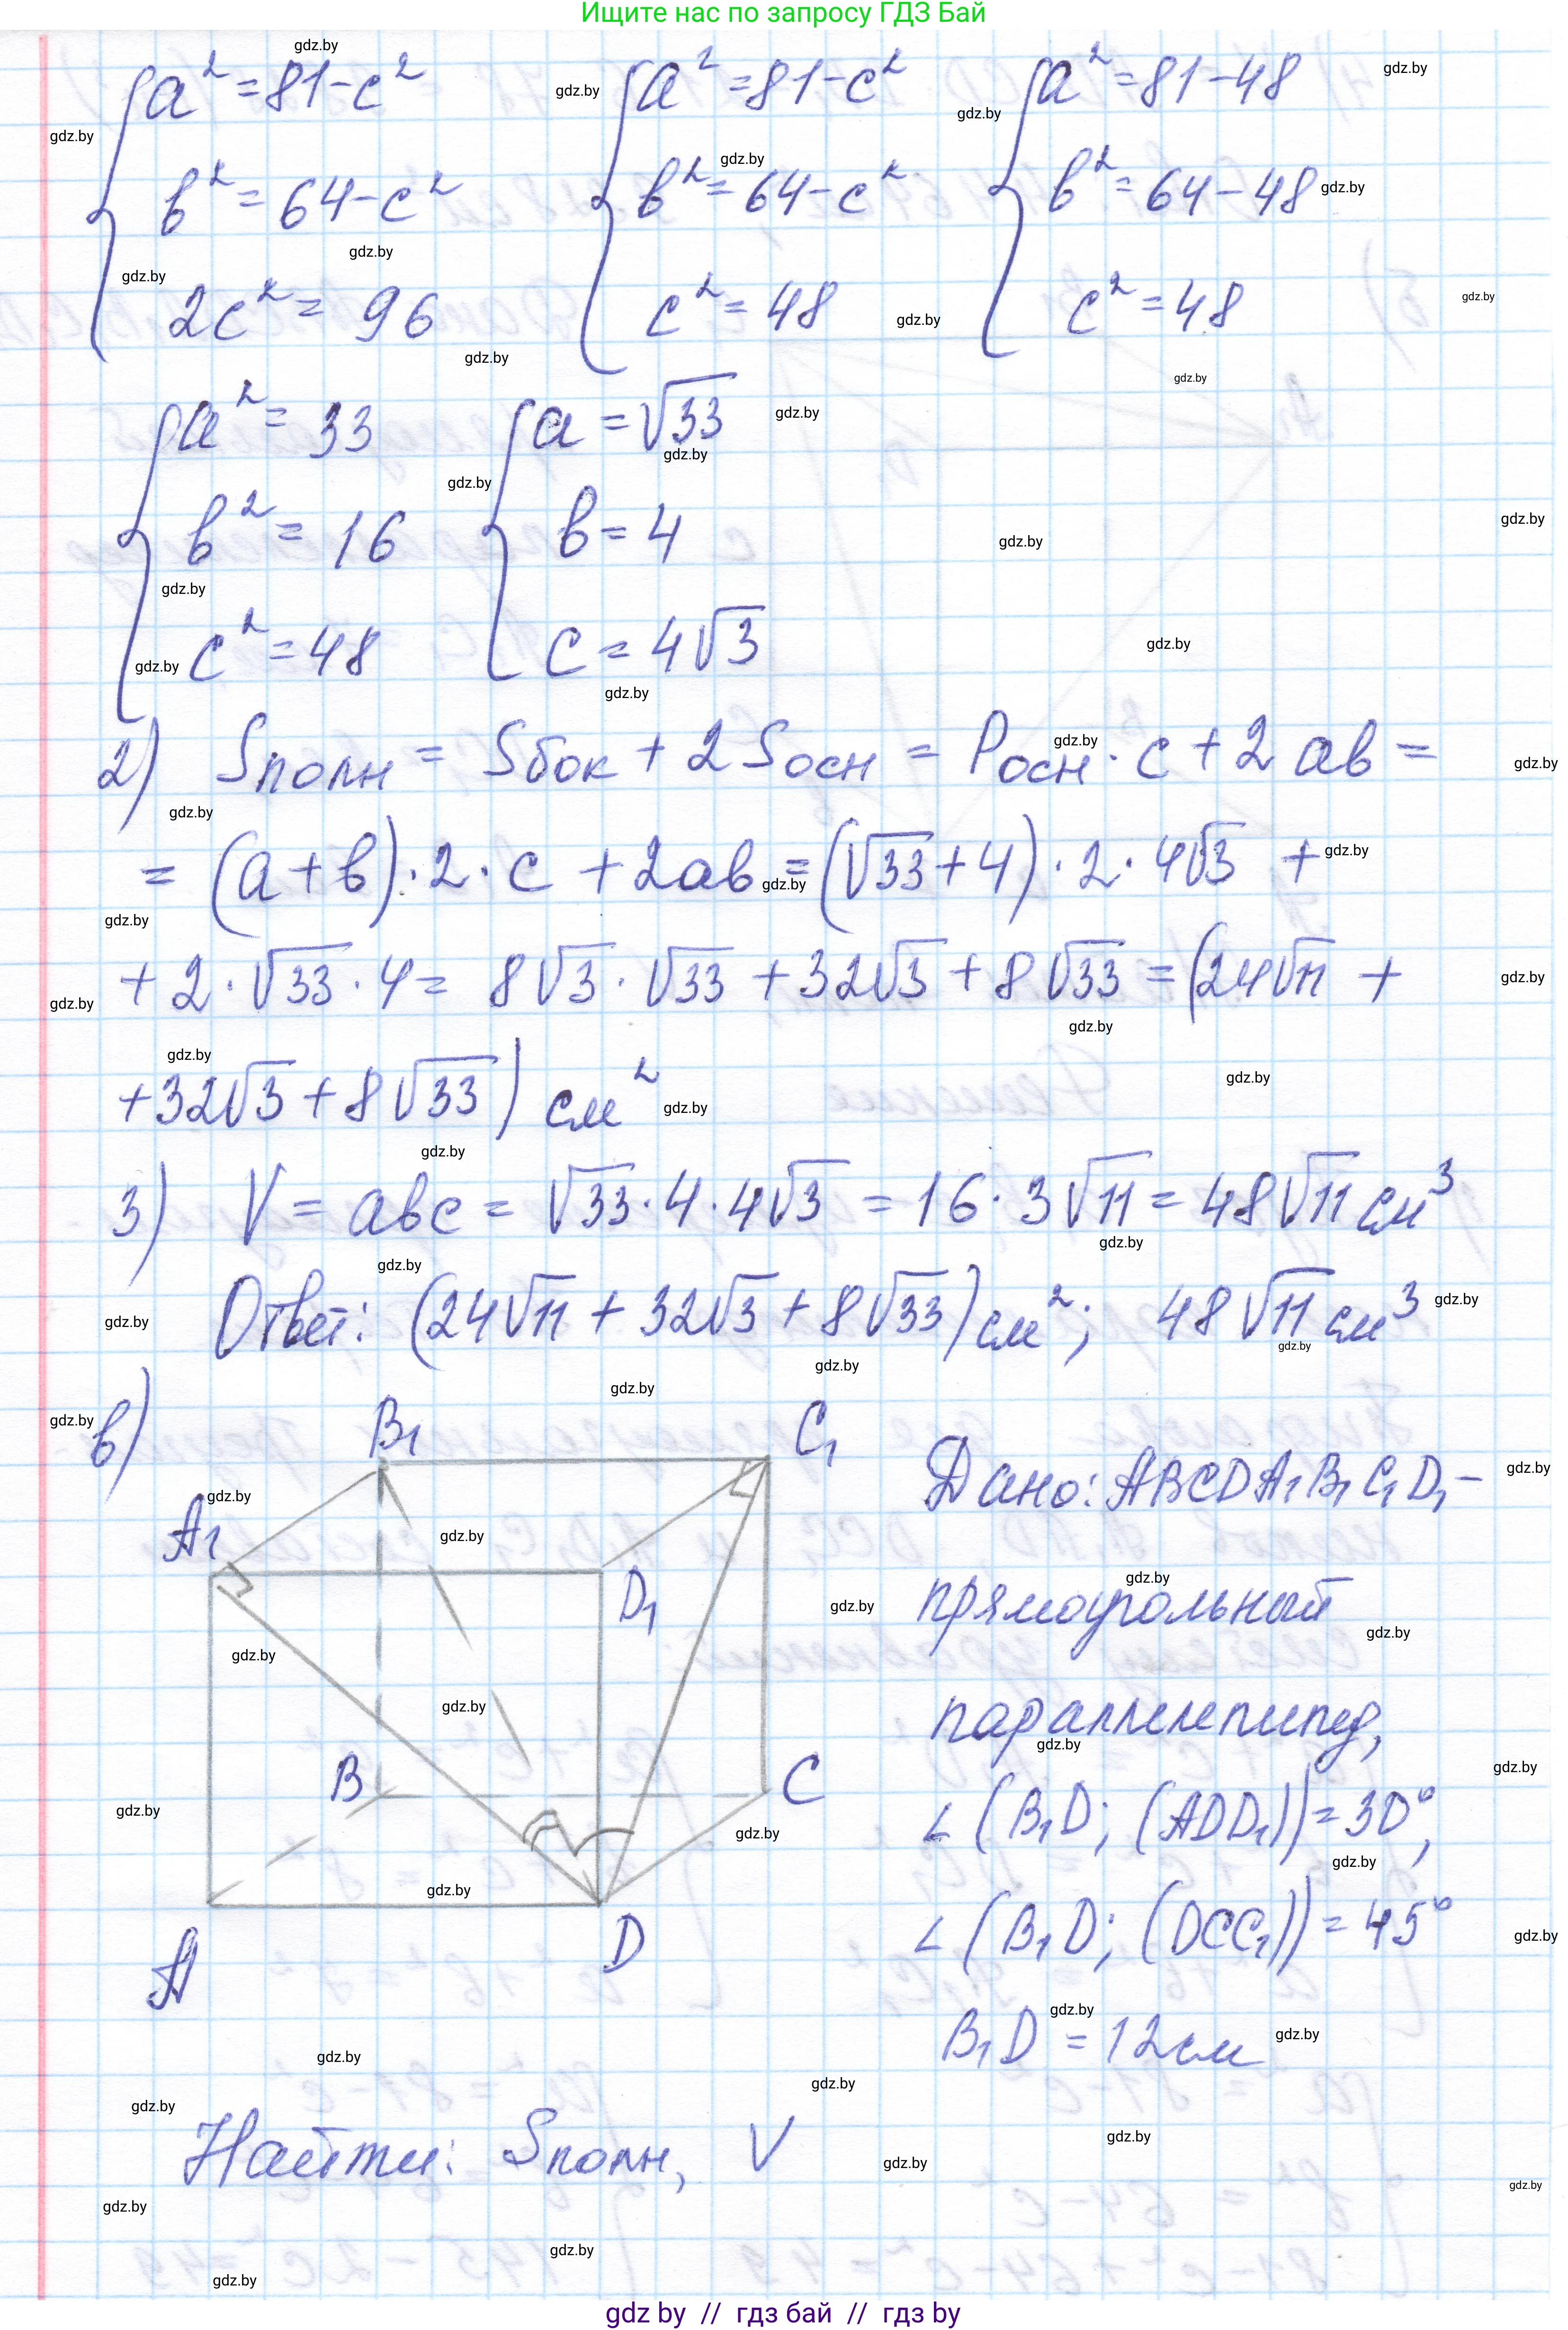 Ищите нас по запросу ГДЗ Бай
a² = 81 - c²   a² = 81 - c²   a² = 81 - 48
b² = 64 - c²   b² = 64 - c²   b² = 64 - 48
2c² = 96   c² = 48   c² = 48
a² = 33   a = √33
b² = 16   b = 4
c² = 48   c = 4√3
2) Sполн = Sбок + 2Sосн = Pосн · c + 2ab =
= (a + b) · 2 · c + 2ab = (√33 + 4) · 2 · 4√3 +
+ 2 · √33 · 4 = 8√3 · √33 + 32√3 + 8√33 = (24√11 +
+ 32√3 + 8√33) см²
3) V = abc = √33 · 4 · 4√3 = 16 · 3√11 = 48√11 см³
Ответ: (24√11 + 32√3 + 8√33) см²; 48√11 см³
в)
B₁ C₁
A₁ D₁
B C
A D
Дано: ABCDA₁B₁C₁D₁ -
прямоугольный
параллелепипед,
∠(B₁D; (ADD₁)) = 30°,
∠(B₁D; (DCC₁)) = 45°
B₁D = 12 см
Найти: Sполн, V
gdz by // гдз бай // гдз by